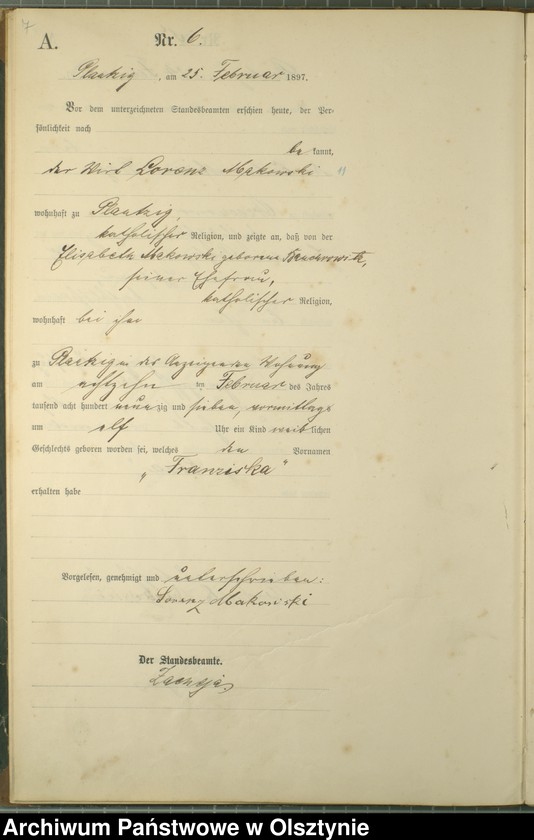 7
A.
Nr. 6.
Plautzig, am 25. Februar 1897.
Vor dem unterzeichneten Standesbeamten erschien heute, der Per-
sönlichkeit nach
be kannt,
der Wirt Lorenz Makowski
wohnhaft zu Plautzig,
katholischer Religion, und zeigte an, daß von der
Elisabeth Makowski geborene
seiner Ehefrau,
katholischer Religion,
wohnhaft bei ihm
zu Plautzig in des Anzeigenden Wohnung
am achtzehn ten Februar des Jahres
tausend acht hundert neun zig und sieben, vormittags
um elf Uhr ein Kind weib lichen
Geschlechts geboren worden sei, welches den Vornamen
„Franziska"
erhalten habe
Vorgelesen, genehmigt und unterschrieben:
Lorenz Makowski
Der Standesbeamte.
Archiwum Państwowe w Olsztynie